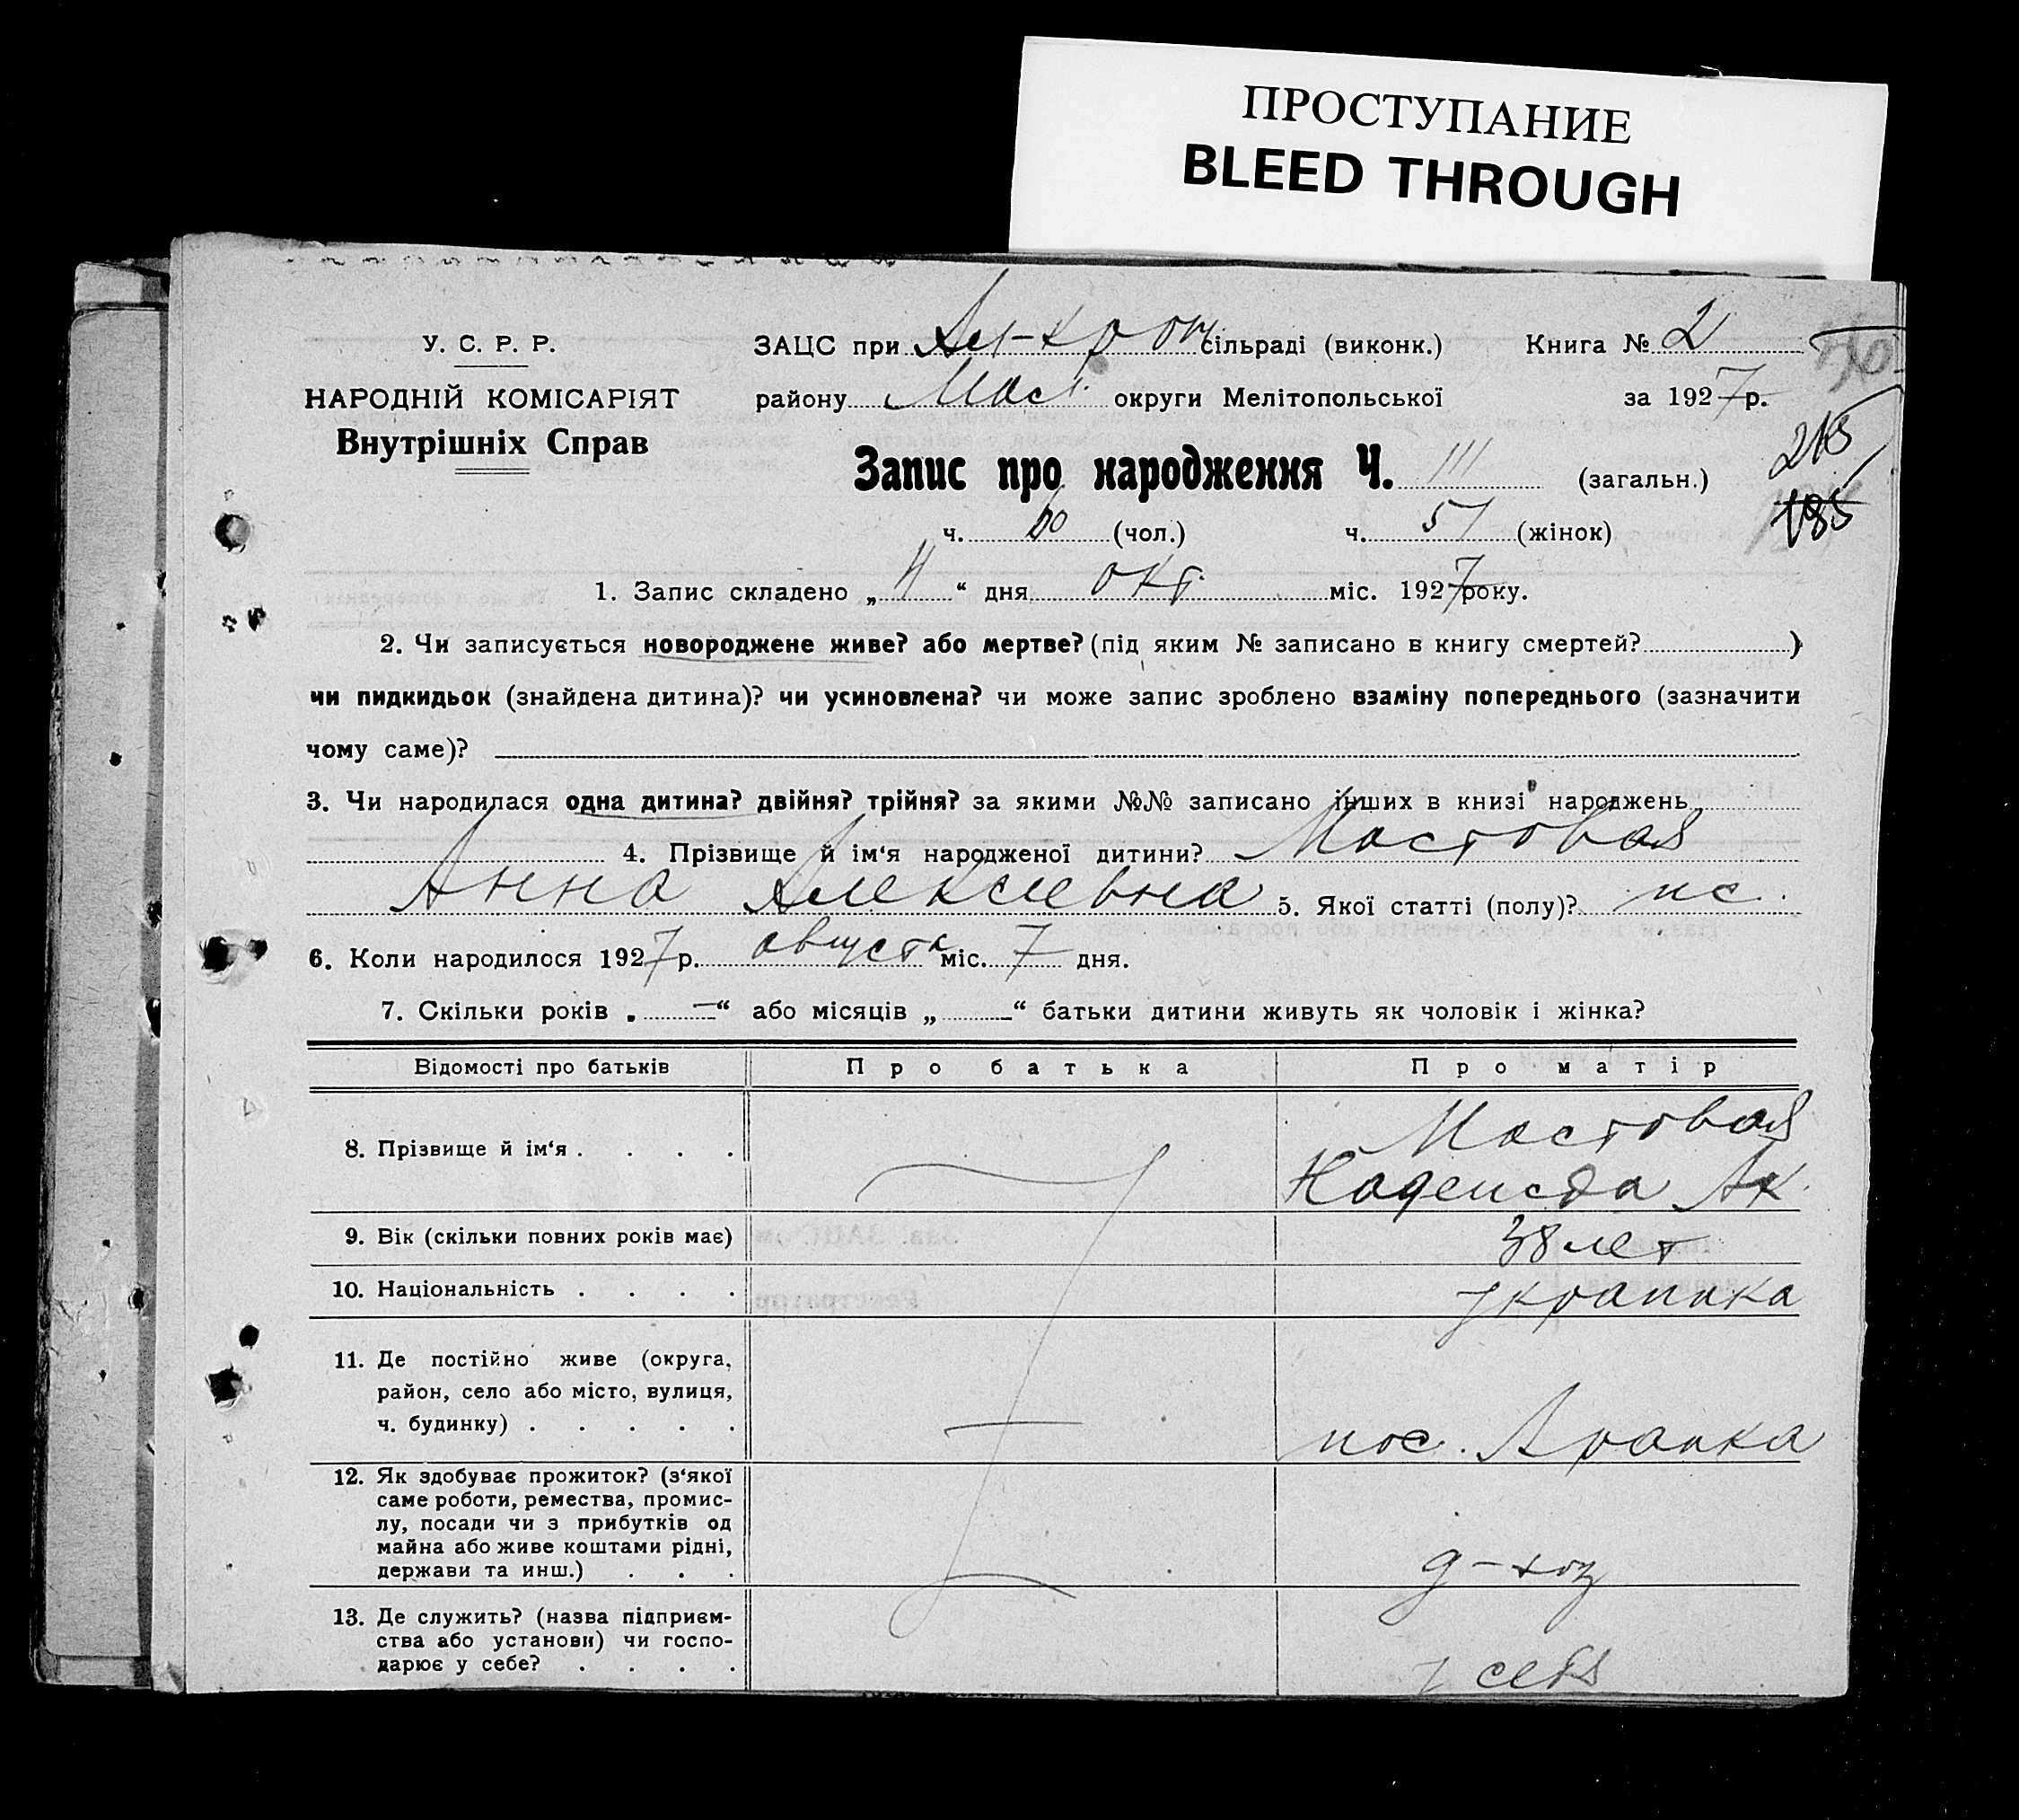 ПРОСТУПАНИЕ
BLEED THROUGH
У. С. Р. Р.
НАРОДНІЙ КОМІСАРІЯТ
Внутрішніх Справ
ЗАЦС при сільраді (виконк.) Книга № 2
району округи Мелітопольської за 1927 р.
215
195
Запис про народження Ч. 111 (загальн.)
ч. 60 (чол.) ч. 51 (жінок)
1. Запис складено „ “ дня окт. міс. 1927 року.
2. Чи записується новороджене живе? або мертве? (під яким № записано в книгу смертей? )
чи пидкидьок (знайдена дитина)? чи усиновлена? чи може запис зроблено взаміну попереднього (зазначити
чому саме)?
3. Чи народилася одна дитина? двійня? трійня? за якими №№ записано інших в книзі народжень
4. Прізвище й ім‘я народженої дитини? Мостовая
Анна Алексеевна 5. Якої статті (полу)? ж.
6. Коли народилося 1927 р. августа міс. 7 дня.
7. Скільки років „ — “ або місяців „ “ батьки дитини живуть як чоловік і жінка?
Відомості про батьків Про батька Про матір
8. Прізвище й ім‘я . . . . Мостовая
Надежда Ак.
9. Вік (скільки повних років має) 38 лет
10. Національність . . . . украинка
11. Де постійно живе (округа,
район, село або місто, вулиця,
ч. будинку) . . . . . пос.
12. Як здобуває прожиток? (з‘якої
саме роботи, ремества, промис-
лу, посади чи з прибутків од
майна або живе коштами рідні,
держави та инш.) . . . д-хоз
13. Де служить? (назва підприєм-
ства або установи) чи госпо-
дарює у себе? . . . . у себя